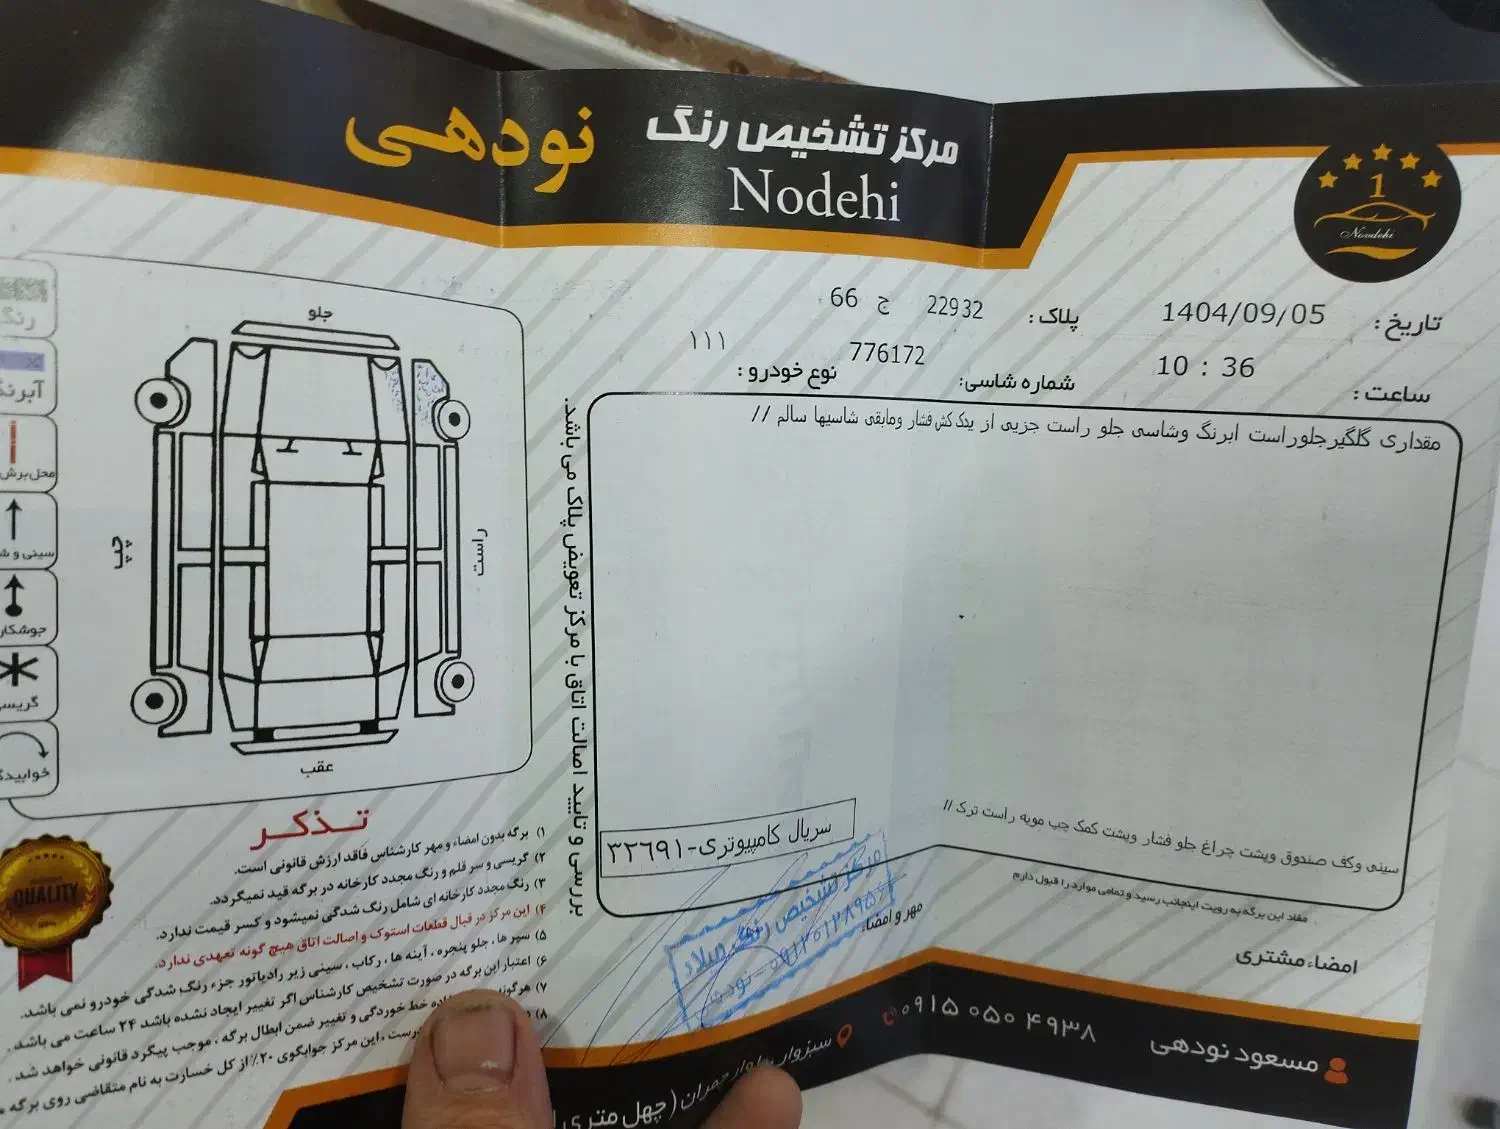 مرکز تشخیص رنگ
نودهی
Nodehi
1
Novdehi
تاریخ : 1404/09/05
پلاک : 22932 ج 66
ساعت : 10 : 36
شماره شاسی: 776172
نوع خودرو : ۱۱۱
مقداری گلگیرجلوراست ابرنگ وشاسی جلو راست جزیی از یدک کش فشار ومابقی شاسیها سالم //
سینی وکف صندوق وپشت چراغ جلو فشار وپشت کمک چپ مویه راست ترک //
سریال کامپیوتری-۳۲۶۹۱
مفاد این برگه به رویت اینجانب رسید و تمامی موارد را قبول دارم
امضاء مشتری
مهر و امضاء
مرکز تشخیص رنگ میلاد
بررسی و تایید اصالت اتاق با مرکز تعویض پلاک می باشد.
جلو
راست
چپ
عقب
رنگ
آبرنگ
محل برش
سینی و
جوشکار
گریسی
خوابیدگ
تـذکـر
۱) برگه بدون امضاء و مهر کارشناس فاقد ارزش قانونی است.
۲) گریسی و سر قلم و رنگ مجدد کارخانه در برگه قید نمیگردد.
۳) رنگ مجدد کارخانه ای شامل رنگ شدگی نمیشود و کسر قیمت ندارد.
۴) این مرکز در قبال قطعات استوک و اصالت اتاق هیچ گونه تعهدی ندارد.
۵) سپر ها ، جلو پنجره ، آینه ها ، رکاب ، سینی زیر رادیاتور جزء رنگ شدگی خودرو نمی باشد.
۶) اعتبار این برگه در صورت تشخیص کارشناس اگر تغییر ایجاد نشده باشد ۲۴ ساعت می باشد .
۷) هرگونه خط خوردگی و تغییر ضمن ابطال برگه ، موجب پیگرد قانونی خواهد شد .
۸) این مرکز جوابگوی ۲۰٪ از کل خسارت به نام متقاضی روی برگه
QUALITY
مسعود نودهی
۰۹۱۵ ۰۵۰ ۴۹۳۸
سبزوار، بلوار چمران (چهل متری